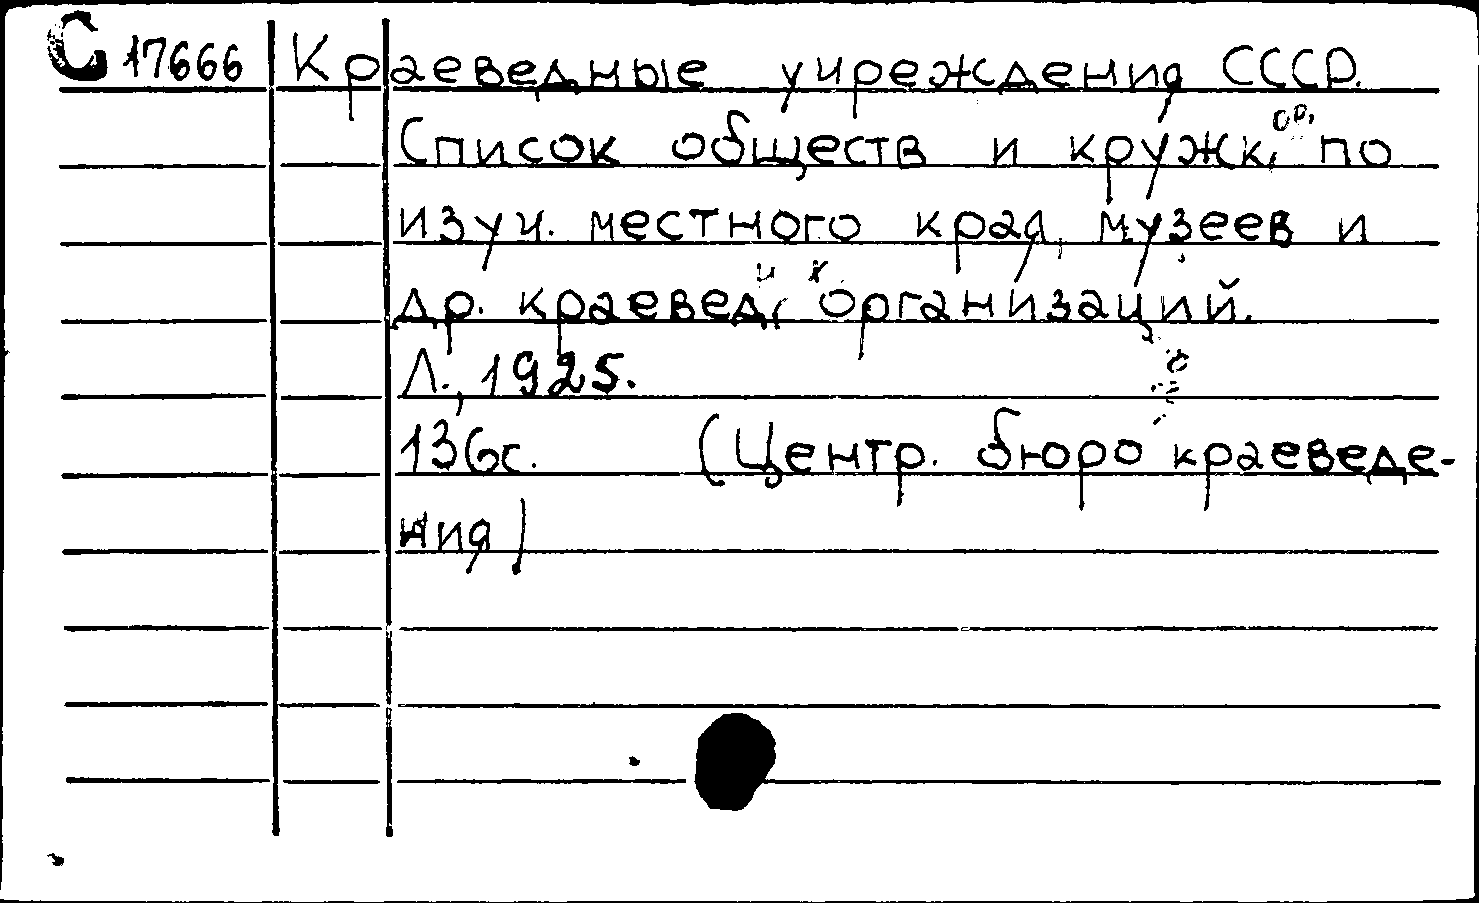 С 17666 Краеведные учреждения СССР.
Список обществ и кружк. по
изуч. местного края, музеев и
др. краевед. организаций.
Л., 1925.
136с. (Центр. бюро краеведе-
ния)